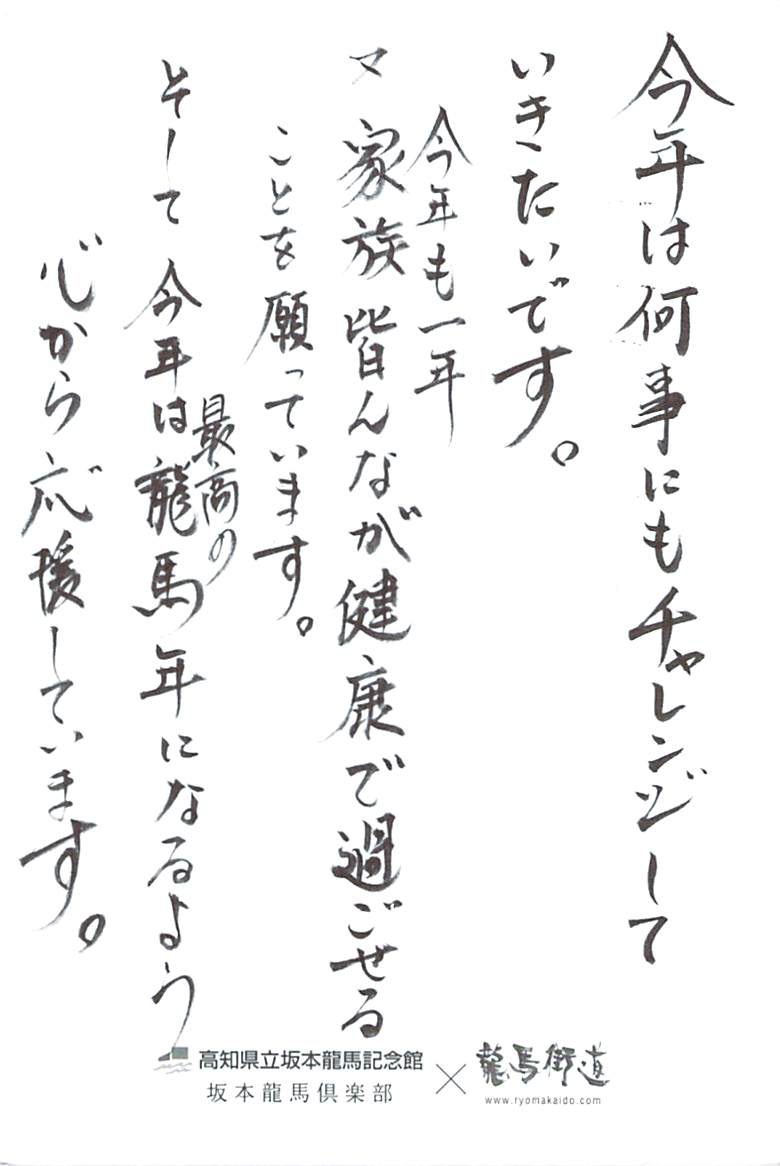 今年は何事にもチャレンジして
いきたいです。
今年も一年
又 家族皆んなが健康で過ごせる
ことを願っています。
最高の
そして 今年は龍馬年になるよう
心から応援しています。
高知県立坂本龍馬記念館
坂本龍馬倶楽部
×
龍馬街道
www.ryomakaido.com